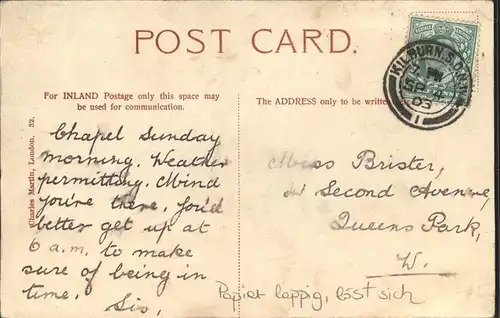 POST CARD.
For INLAND Postage only this space may
be used for communication.
The ADDRESS only to be written
KILBURN.S.O.
SP 4
03
1
Charles Martin, London. 32.
Chapel Sunday
morning. Weather
permitting. Mind
you're there. You'd
better get up at
6 a.m. to make
sure of being in
time.
Sis.
Miss Brister,
41 Second Avenue,
Queens Park,
W.
Papier lappig, löst sich